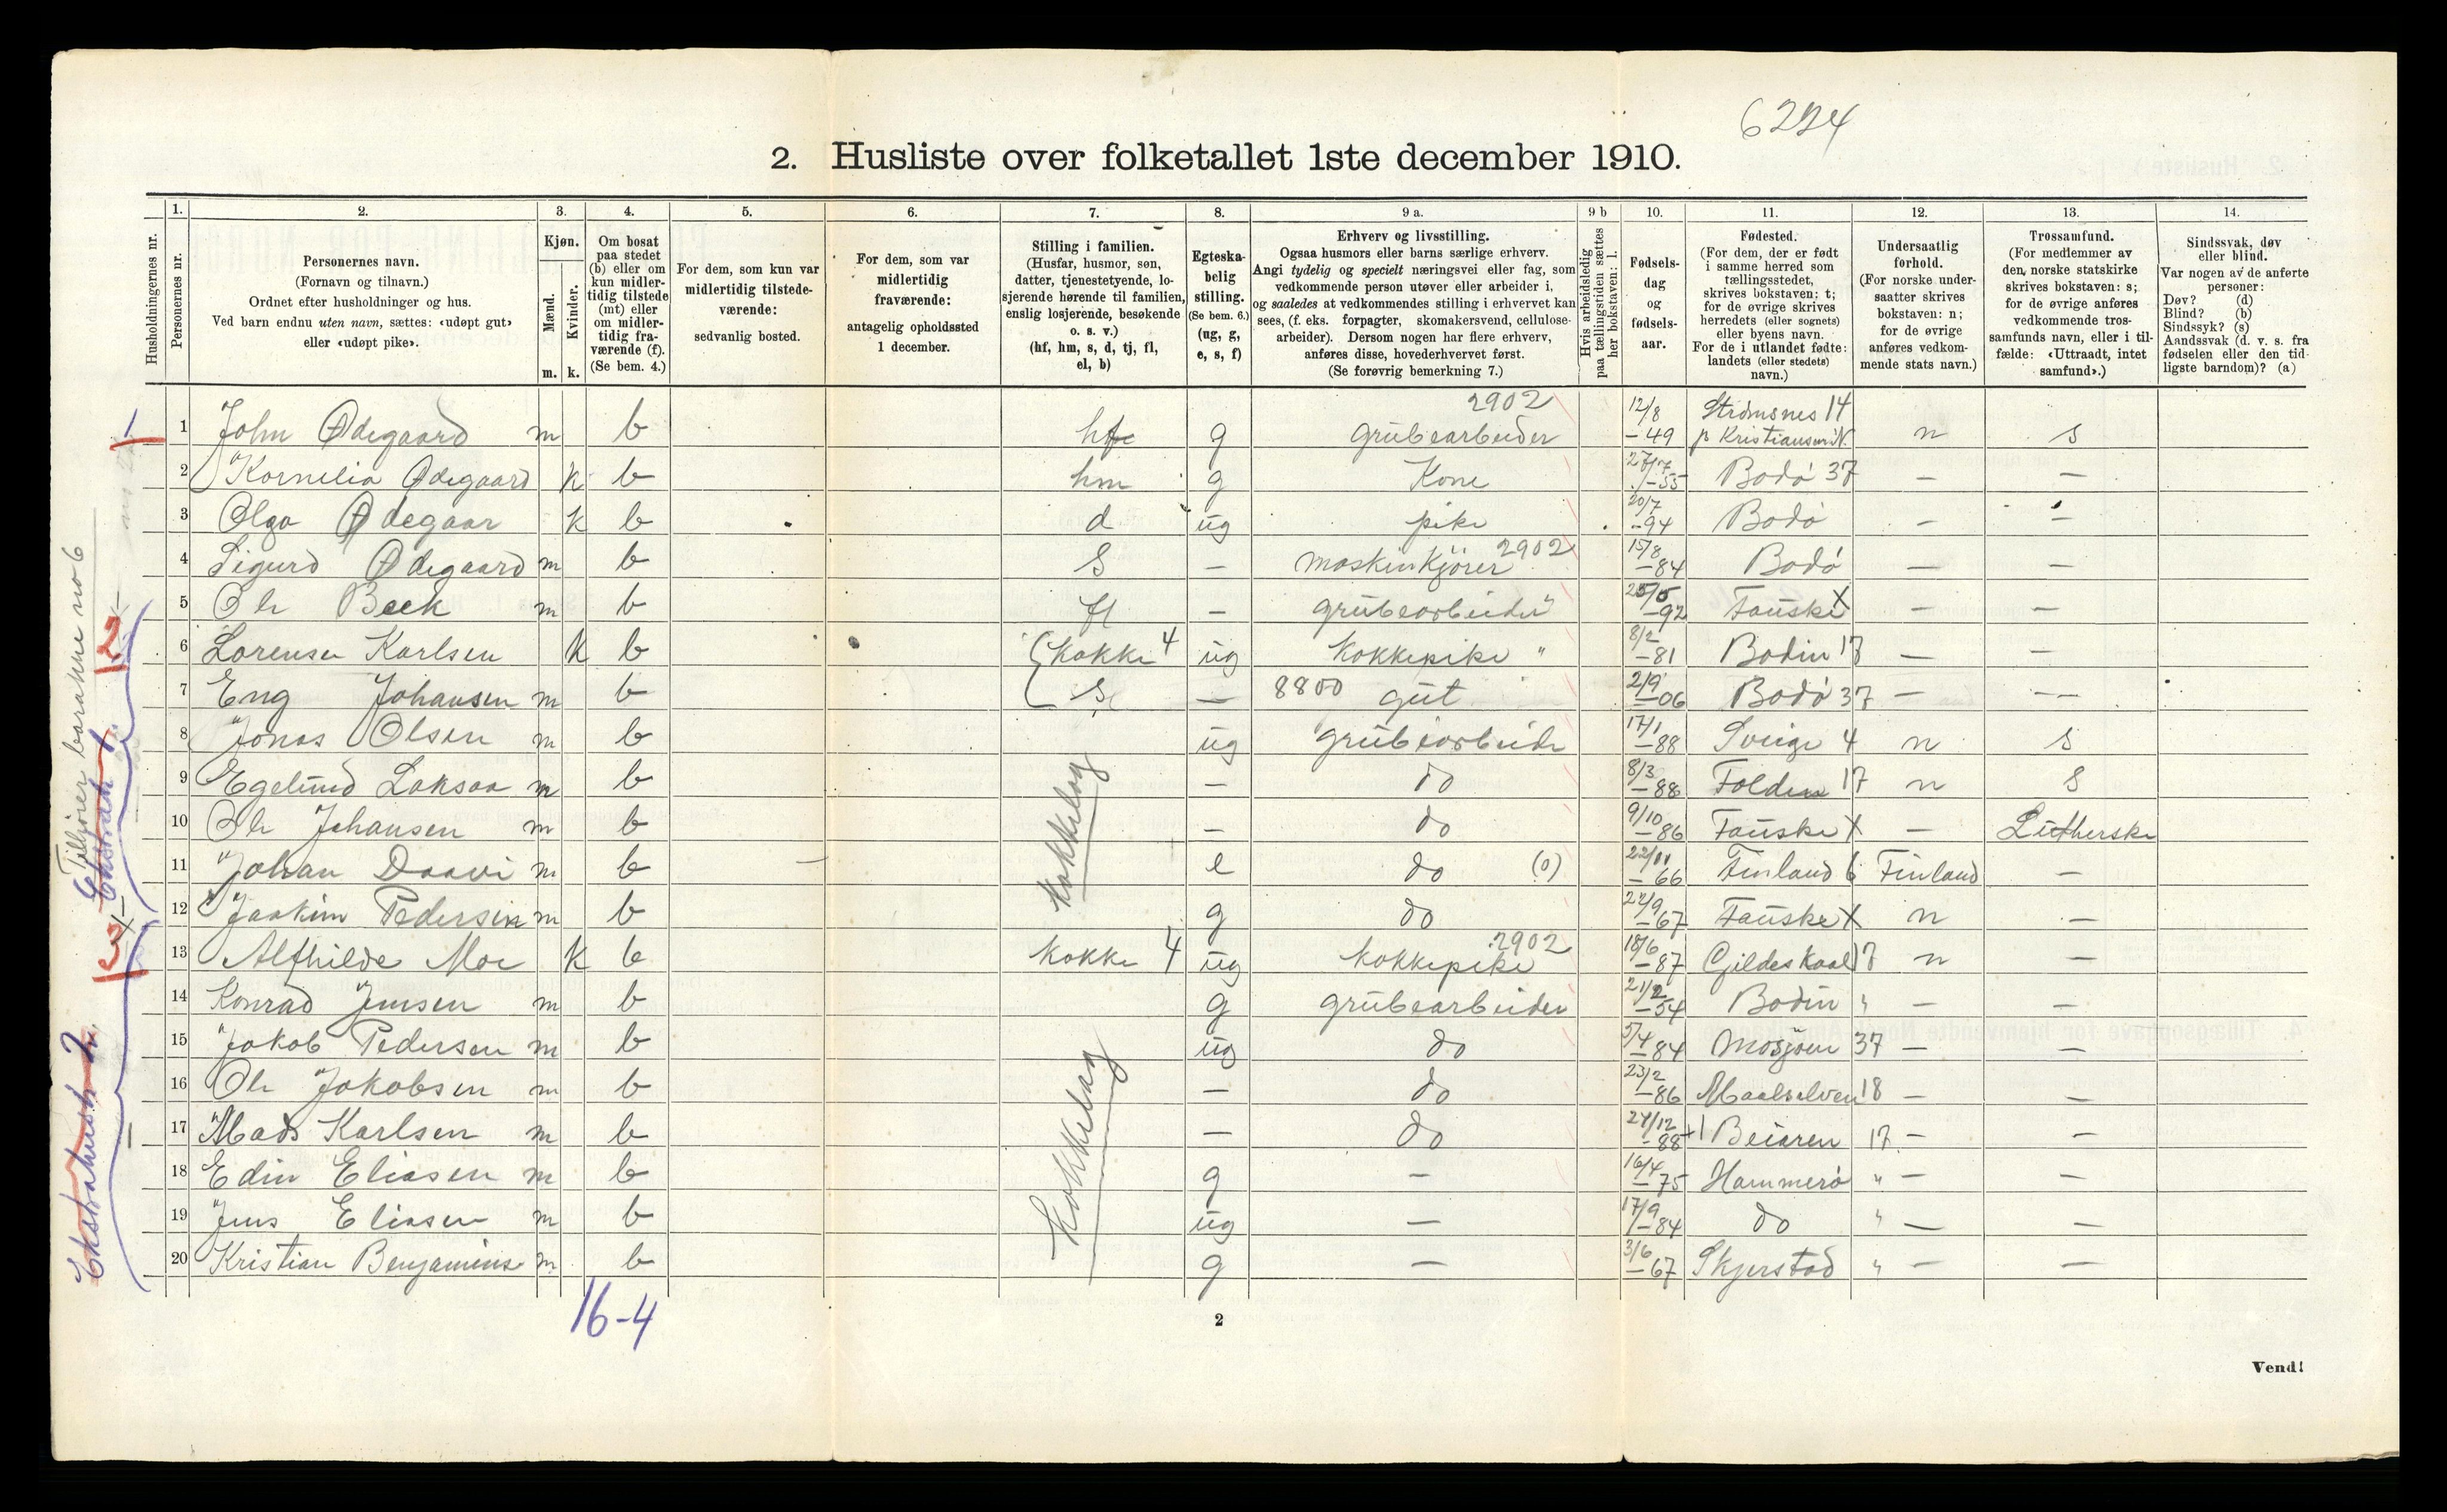 6224
2. Husliste over folketallet 1ste december 1910.
Husholdningernes nr.
1. Personernes nr.
2. Personernes navn.
(Fornavn og tilnavn.)
Ordnet efter husholdninger og hus.
Ved barn endnu uten navn, sættes: «udøpt gut»
eller «udøpt pike».
3. Kjøn.
Mænd. m.
Kvinder. k.
4. Om bosat
paa stedet
(b) eller om
kun midler-
tidig tilstede
(mt) eller
om midler-
tidig fra-
værende (f).
(Se bem. 4.)
5. For dem, som kun var
midlertidig tilstede-
værende:
sedvanlig bosted.
6. For dem, som var
midlertidig
fraværende:
antagelig opholdssted
1 december.
7. Stilling i familien.
(Husfar, husmor, søn,
datter, tjenestetyende, lo-
sjerende hørende til familien,
enslig losjerende, besøkende
o. s. v.)
(hf, hm, s, d, tj, fl,
el, b)
8. Egteska-
belig
stilling.
(Se bem. 6.)
(ug, g,
e, s, f)
9 a. Erhverv og livsstilling.
Ogsaa husmors eller barns særlige erhverv.
Angi tydelig og specielt næringsvei eller fag, som
vedkommende person utøver eller arbeider i,
og saaledes at vedkommendes stilling i erhvervet kan
sees, (f. eks. forpagter, skomakersvend, cellulose-
arbeider). Dersom nogen har flere erhverv,
anføres disse, hovederhvervet først.
(Se forøvrig bemerkning 7.)
9 b Hvis arbeidsledig
paa tællingstiden sættes
her bokstaven: l.
10. Fødsels-
dag
og
fødsels-
aar.
11. Fødested.
(For dem, der er født
i samme herred som
tællingsstedet,
skrives bokstaven: t;
for de øvrige skrives
herredets (eller sognets)
eller byens navn.
For de i utlandet fødte:
landets (eller stedets)
navn.)
12. Undersaatlig
forhold.
(For norske under-
saatter skrives
bokstaven: n;
for de øvrige
anføres vedkom-
mende stats navn.)
13. Trossamfund.
(For medlemmer av
den norske statskirke
skrives bokstaven: s;
for de øvrige anføres
vedkommende tros-
samfunds navn, eller i til-
fælde: «Uttraadt, intet
samfund».)
14. Sindssvak, døv
eller blind.
Var nogen av de anførte
personer:
Døv? (d)
Blind? (b)
Sindssyk? (s)
Aandssvak (d. v. s. fra
fødselen eller den tid-
ligste barndom)? (a)
1 John Ødegaard m b hf g grübearbeider 2902 12/8 -49 Strömsnes 14 p Kristiansun N. n s
2 Kornelia Ødegaard k b hm g Kone 27/7 -55 Bodö 37 - -
3 Olga Ødegaar k b d üg pike 20/7 -94 Bodö - -
4 Sigurd Ødegaard m b S - maskinkjörer 2902 15/8 -84 Bodö - -
5 Ole Beck m b fl - grübearbeider " 25/5 -92 Faüske X - -
6 Lorense Karlsen k b Kokke 4 üg Kokkepike " 8/2 -81 Bodin 17 - -
7 Eng Johansen m b S - 8800 güt 2/9 -06 Bodö 37 - -
8 Jonas Olsen m b üg grübearbeide 17/1 -88 Sverige 4 n s
9 Egelund Laksaa m b - do 8/3 -88 Folden 17 n S
10 Ole Johansen m b - do 9/10 -86 Faüske X - Lütherske
Kokkelag
11 Johan Daavi m b e do (0) 22/11 -66 Finland 6 Finland -
12 Joakim Pedersen m b g do 22/9 -67 Faüske X n -
13 Alfhilde Moe k b Kokke 4 üg Kokkepike 2902 18/6 -87 Gildeskaal 17 n -
14 Konrad Jensen m b g grübearbeider 21/2 -54 Bodin " - -
15 Jakob Pedersen m b üg do 5/4 -84 Mosjöen 37 - -
16 Ole Jakobsen m b - do 23/2 -86 Maalselven 18 - -
Kokkelag
17 Mads Karlsen m b - do 24/12 -88 +1 Beiaren 17 - -
18 Edin Eliasen m b g - 16/4 -75 Hammerö " - -
19 Jens Eliasen m b üg - 17/9 -84 do " - -
20 Kristian Benjamins m b g - 3/6 -67 Skjerstad " - -
Tilhjører barakke no 6
Ekstrah 1.
Ekstrahush 2.
16-4
2
Vend!